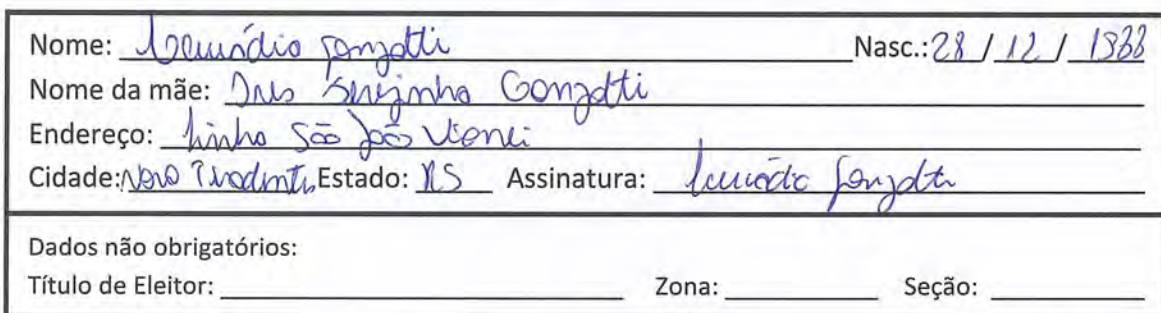 Nome: Gonzatti Nasc.: 28 / 12 / 1988
Nome da mãe: Ines Gonzatti
Endereço: Linha São João Vianei
Cidade: Novo Tiradentes Estado: RS Assinatura: Gonzatti
Dados não obrigatórios:
Título de Eleitor: Zona: Seção: